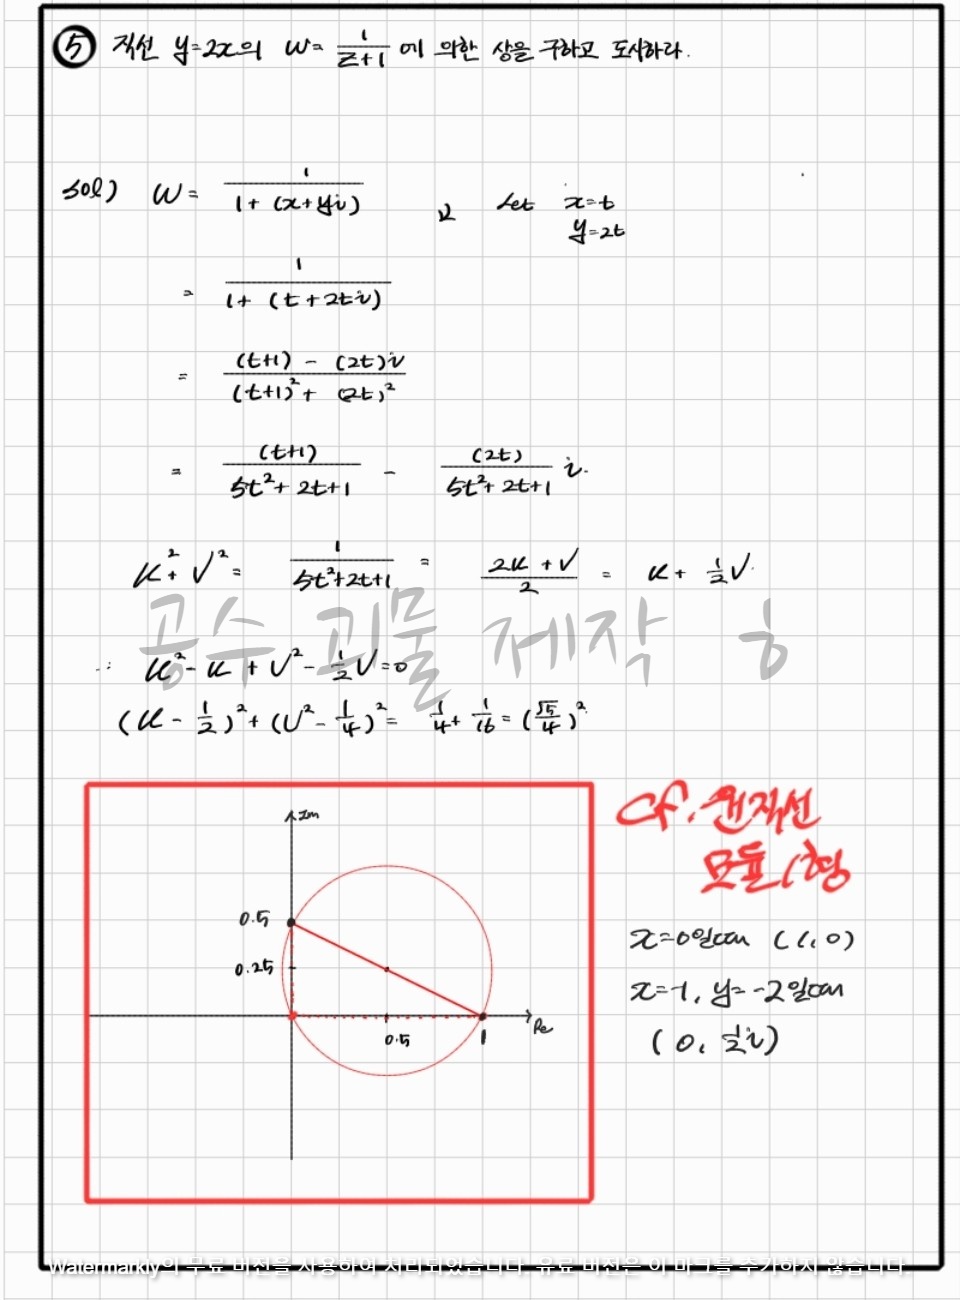 ⑤ 직선 y=2x의 w= 1/(z+1) 에 의한 상을 구하고 도시하라.
sol) w = 1/(1+(x+yi)) Let x=t
y=2t
= 1/(1+(t+2ti))
= ((t+1) - (2t)i)/((t+1)²+(2t)²)
= (t+1)/(5t²+2t+1) - (2t)/(5t²+2t+1) i.
u²+v² = 1/(5t²+2t+1) = (2u+v)/2 = u+ ½v
공수 괴물 제작 ㅎ
∴ u²-u+v²-½v=0
(u-½)²+(v²-¼)²= ¼+1/16=(√5/4)²
Im
0.5
0.25
0.5
1
Re
cf. 원직선
모듈/형
x=0일때 (1, 0)
x=-1, y=-2일때
(0, ½i)
Watermarkly의 무료 버전을 사용하여 처리되었습니다. 유료 버전은 이 마크를 추가하지 않습니다.